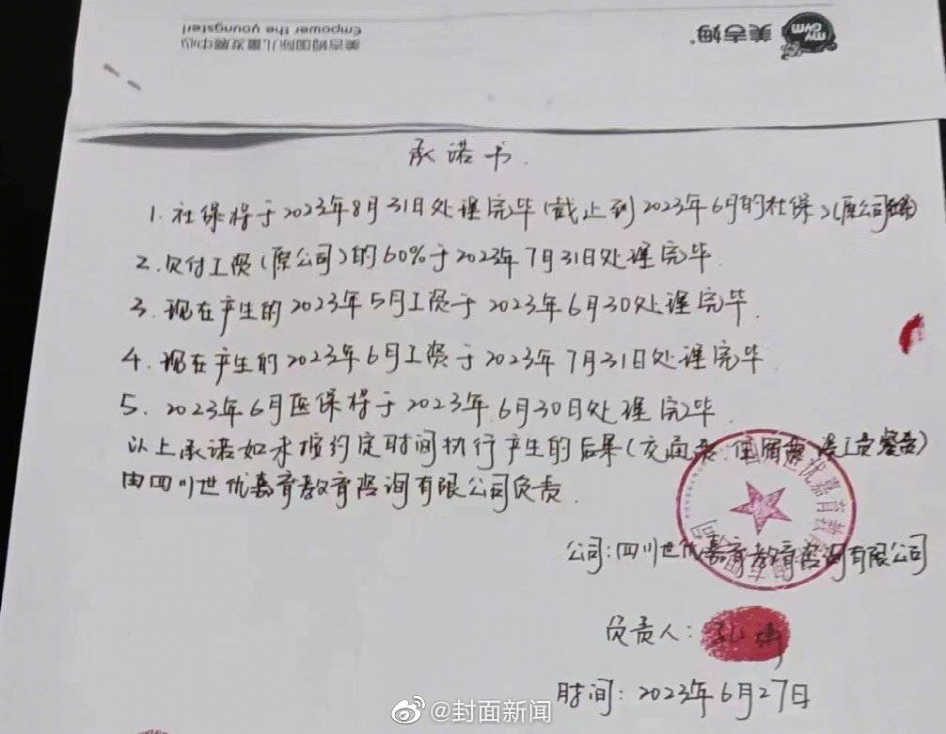 美吉姆国际儿童发展中心
Empower the youngster!
MY GYM 美吉姆
承诺书.
1. 社保将于2023年8月31日处理完毕(截止到2023年6月的社保)(原公司
2. 欠付工资(原公司)的60%于2023年7月31日处理完毕.
3. 现在产生的2023年5月工资于2023年6月30处理完毕.
4. 现在产生的2023年6月工资于2023年7月31日处理完毕.
5. 2023年6月医保将于2023年6月30日处理完毕.
以上承诺如未按约定时间执行产生的后果(
由四川世优嘉育教育咨询有限公司负责.
公司:四川世优嘉育教育咨询有限公司
负责人:
时间:2023年6月27日
@封面新闻